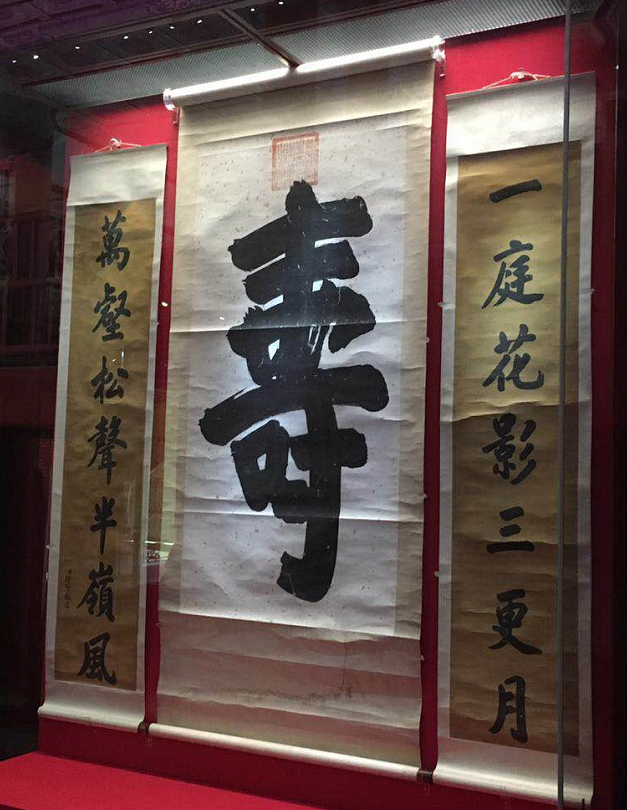 一庭花影三更月
壽
萬壑松聲半嶺風